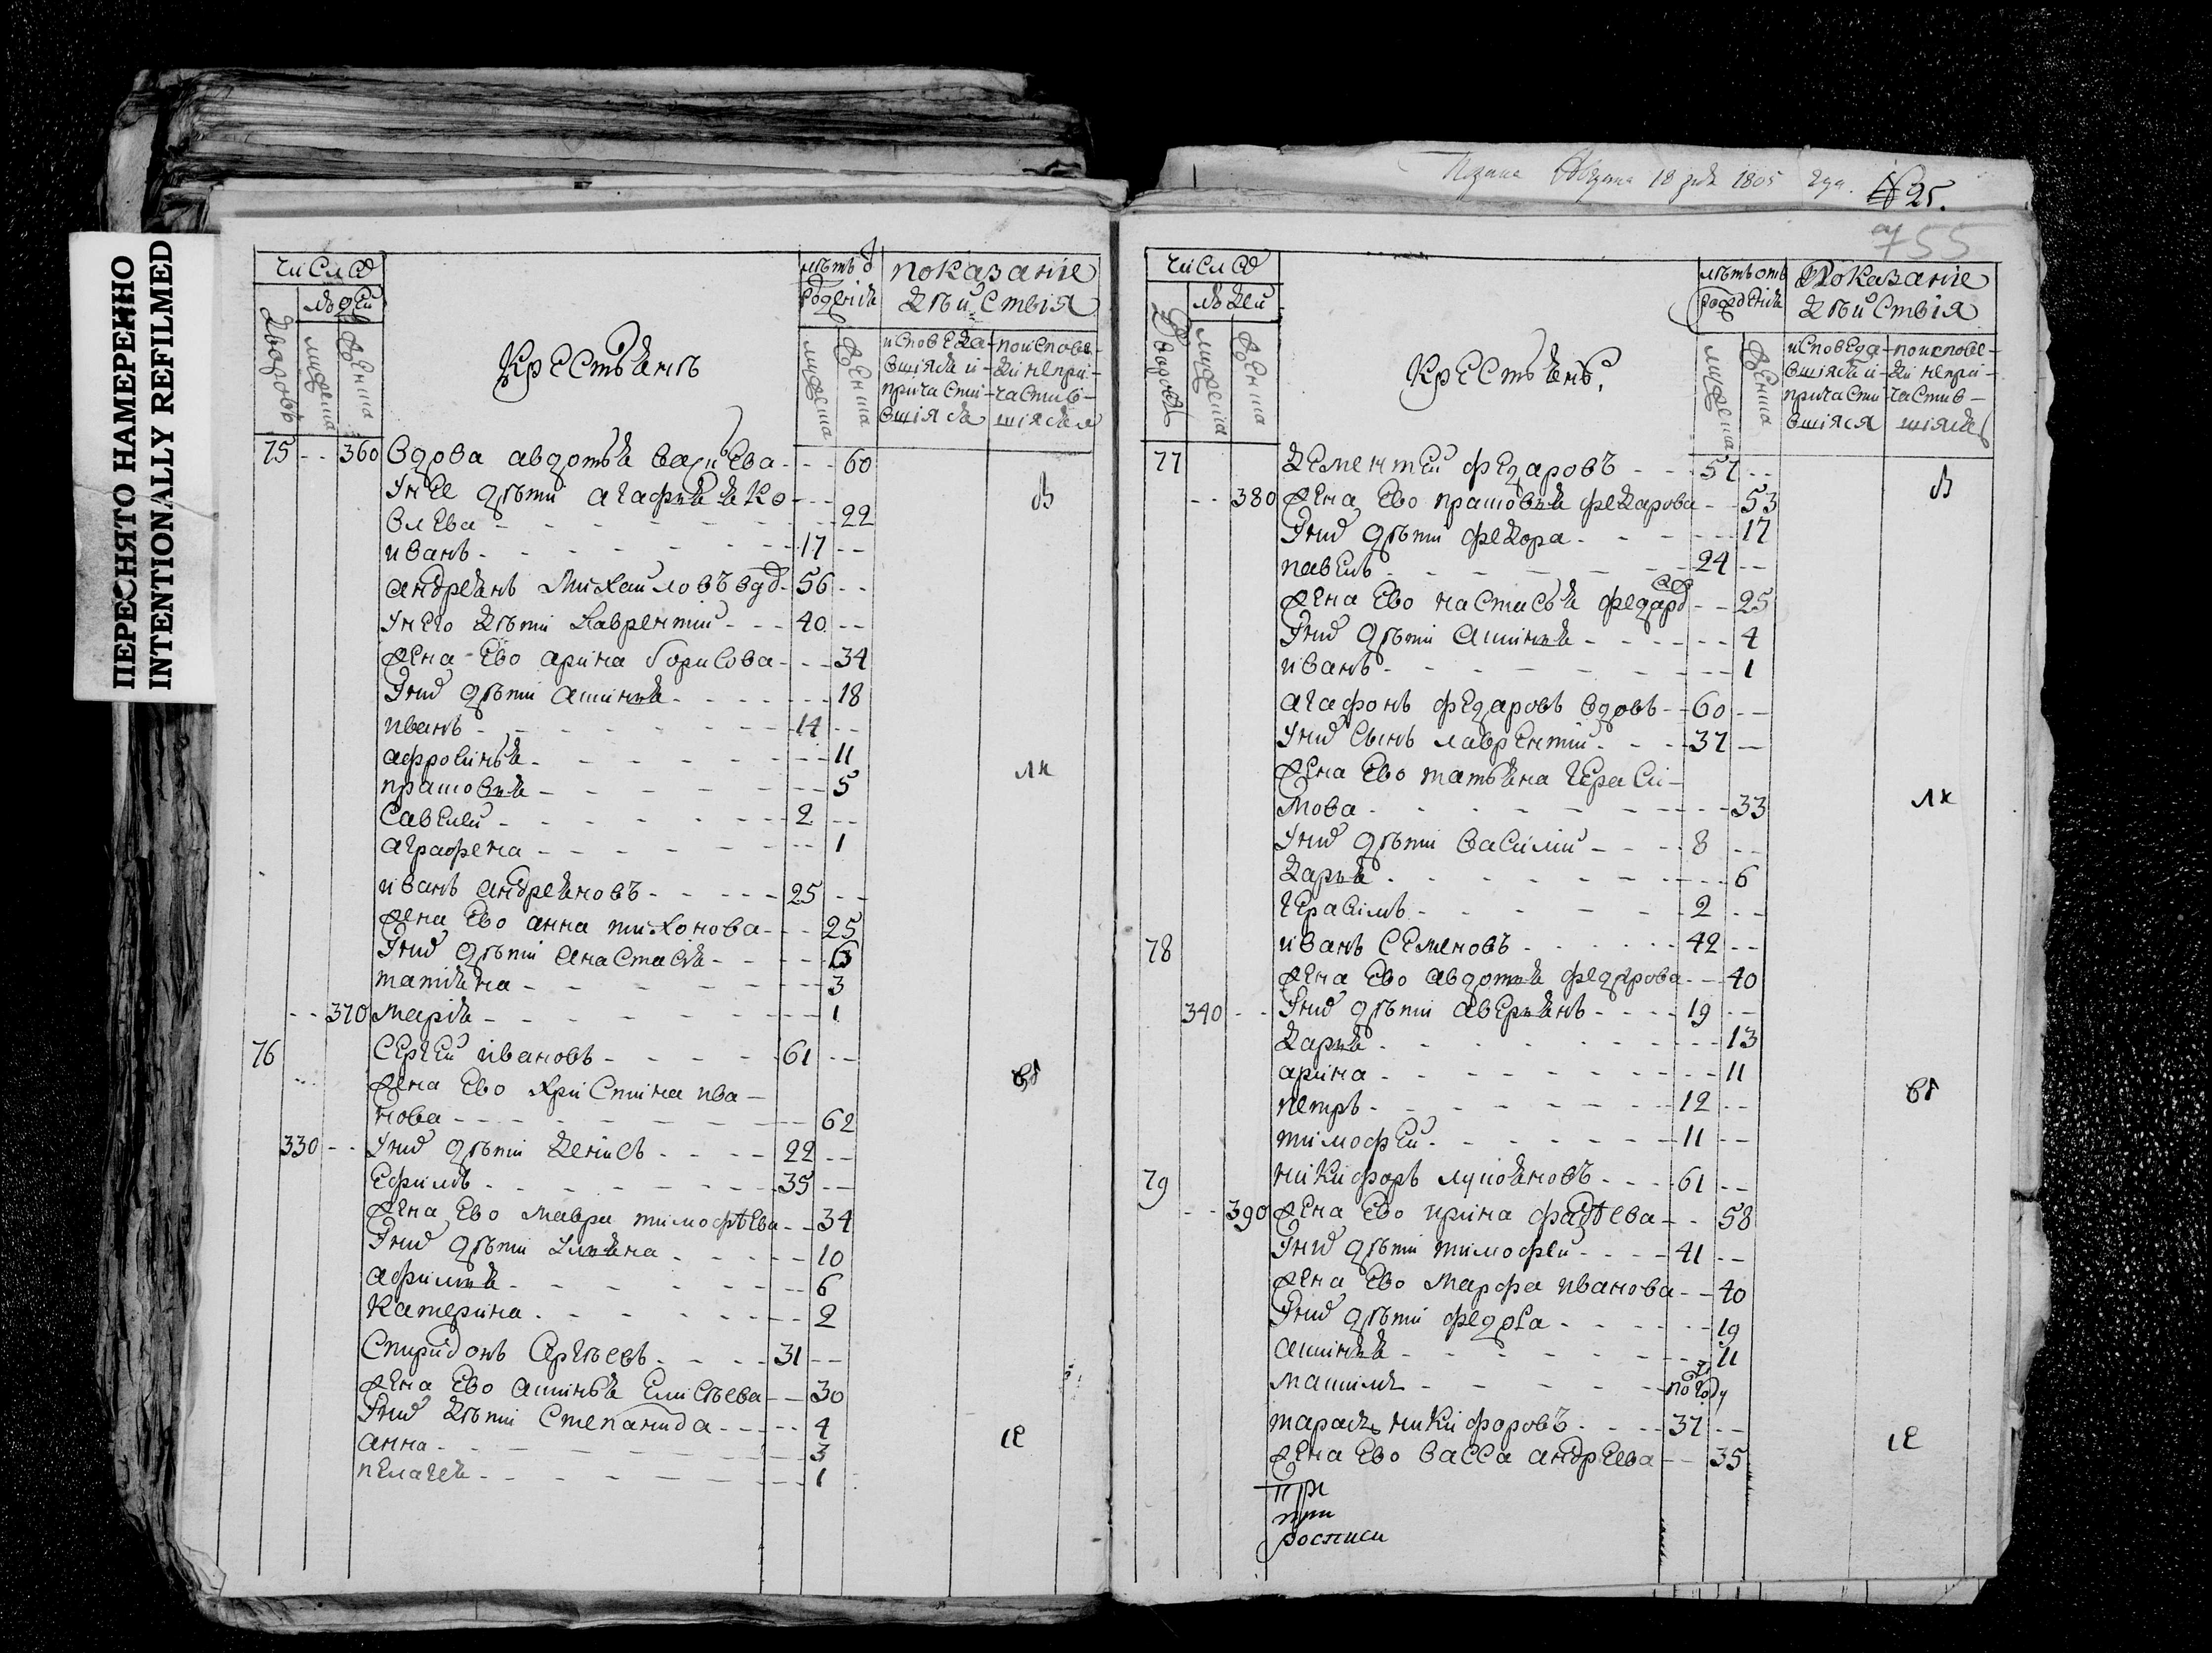 ПЕРЕСНЯТО НАМЕРЕННО
INTENTIONALLY REFILMED
число
людей
дворовъ
мужеска
женска
Крестьянъ
показание
действия
исповеда- поисповѣ-
вшияся и- ди непри-
причасти- частив-
вшияся шияся
75 -- 360 Вдова авдотья - - 60
У нее дѣти агафья яко
влева - - 22
иванъ - 17 --
андреянъ михаиловъ вдо 56 --
У него дѣти Лаврентии - 40 --
жена Ево арина борисова - - 34
У нихъ дѣти аксинья - - 18
иванъ - 14 --
афросинья - - 11
прасковья - - 5
Савелии - 2 --
аграфена - - 1
иванъ андреяновъ - 25 --
жена Ево анна тихонова - - 25
У нихъ дѣти анастасия - -
татияна - - 3
-- 370 мария - - 1
76 Сергеи ивановъ - 61 --
жена Ево христина ива-
нова - - 62
330 -- У нихъ дѣти денисъ - 22 --
Ефимъ - 35 --
жена Ево мавра тимофѣева - - 34
У нихъ дѣти ульяна - - 10
афимья - - 6
катерина - - 2
Спиридонъ Сергѣевъ - 31 --
жена Ево аксинья Елисѣева - - 30
У нихъ дѣти Степанида - - 4
анна - - 3
пелагея - - 1
августа 18 дня 1805 года. № 25.
755
число
людей
дворовъ
мужеска
женска
Крестьянъ
лѣтъ отъ
рождения
мужеска
женска
Показание
действия
исповеда- поисповѣ-
вшияся и- ди непри-
причасти- частив-
вшияся шияся
77 Дементеи федаровъ - 57 --
-- 380 жена Ево прасковья федарова - - 53
У нихъ дѣти федора - - 17
павелъ - 24 --
жена Ево настасья федаро - - 25
У нихъ дѣти аксинья - - 4
иванъ - - 1
агафонъ федаровъ вдовъ - 60 --
У нихъ сынъ лаврентии - 37 --
жена Ево татьяна гераси-
мова - - 33
У нихъ дѣти василии - 8 --
дарья - - 6
герасимъ - 2 --
78 иванъ Семеновъ - 42 --
жена Ево авдотья федарова - - 40
340 -- У нихъ дѣти аверьянъ - 19 --
дарья - - 13
арина - - 11
петръ - 12 --
тимофеи - 11 --
79 никифоръ лукьяновъ - 61 --
-- 390 жена Ево ирина фадѣева - - 58
У нихъ дѣти тимофеи - 41 --
жена Ево марфа иванова - - 40
У нихъ дѣти федоса - - 19
аксинья - - 11
максимъ - по году
тарасъ никифоровъ - 37 --
жена Ево васса андреева - - 35
росписи